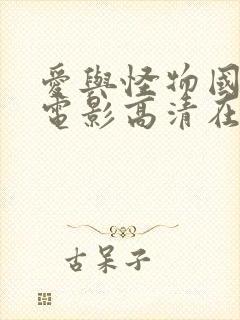 愛與怪物國
電影高清在
古呆子